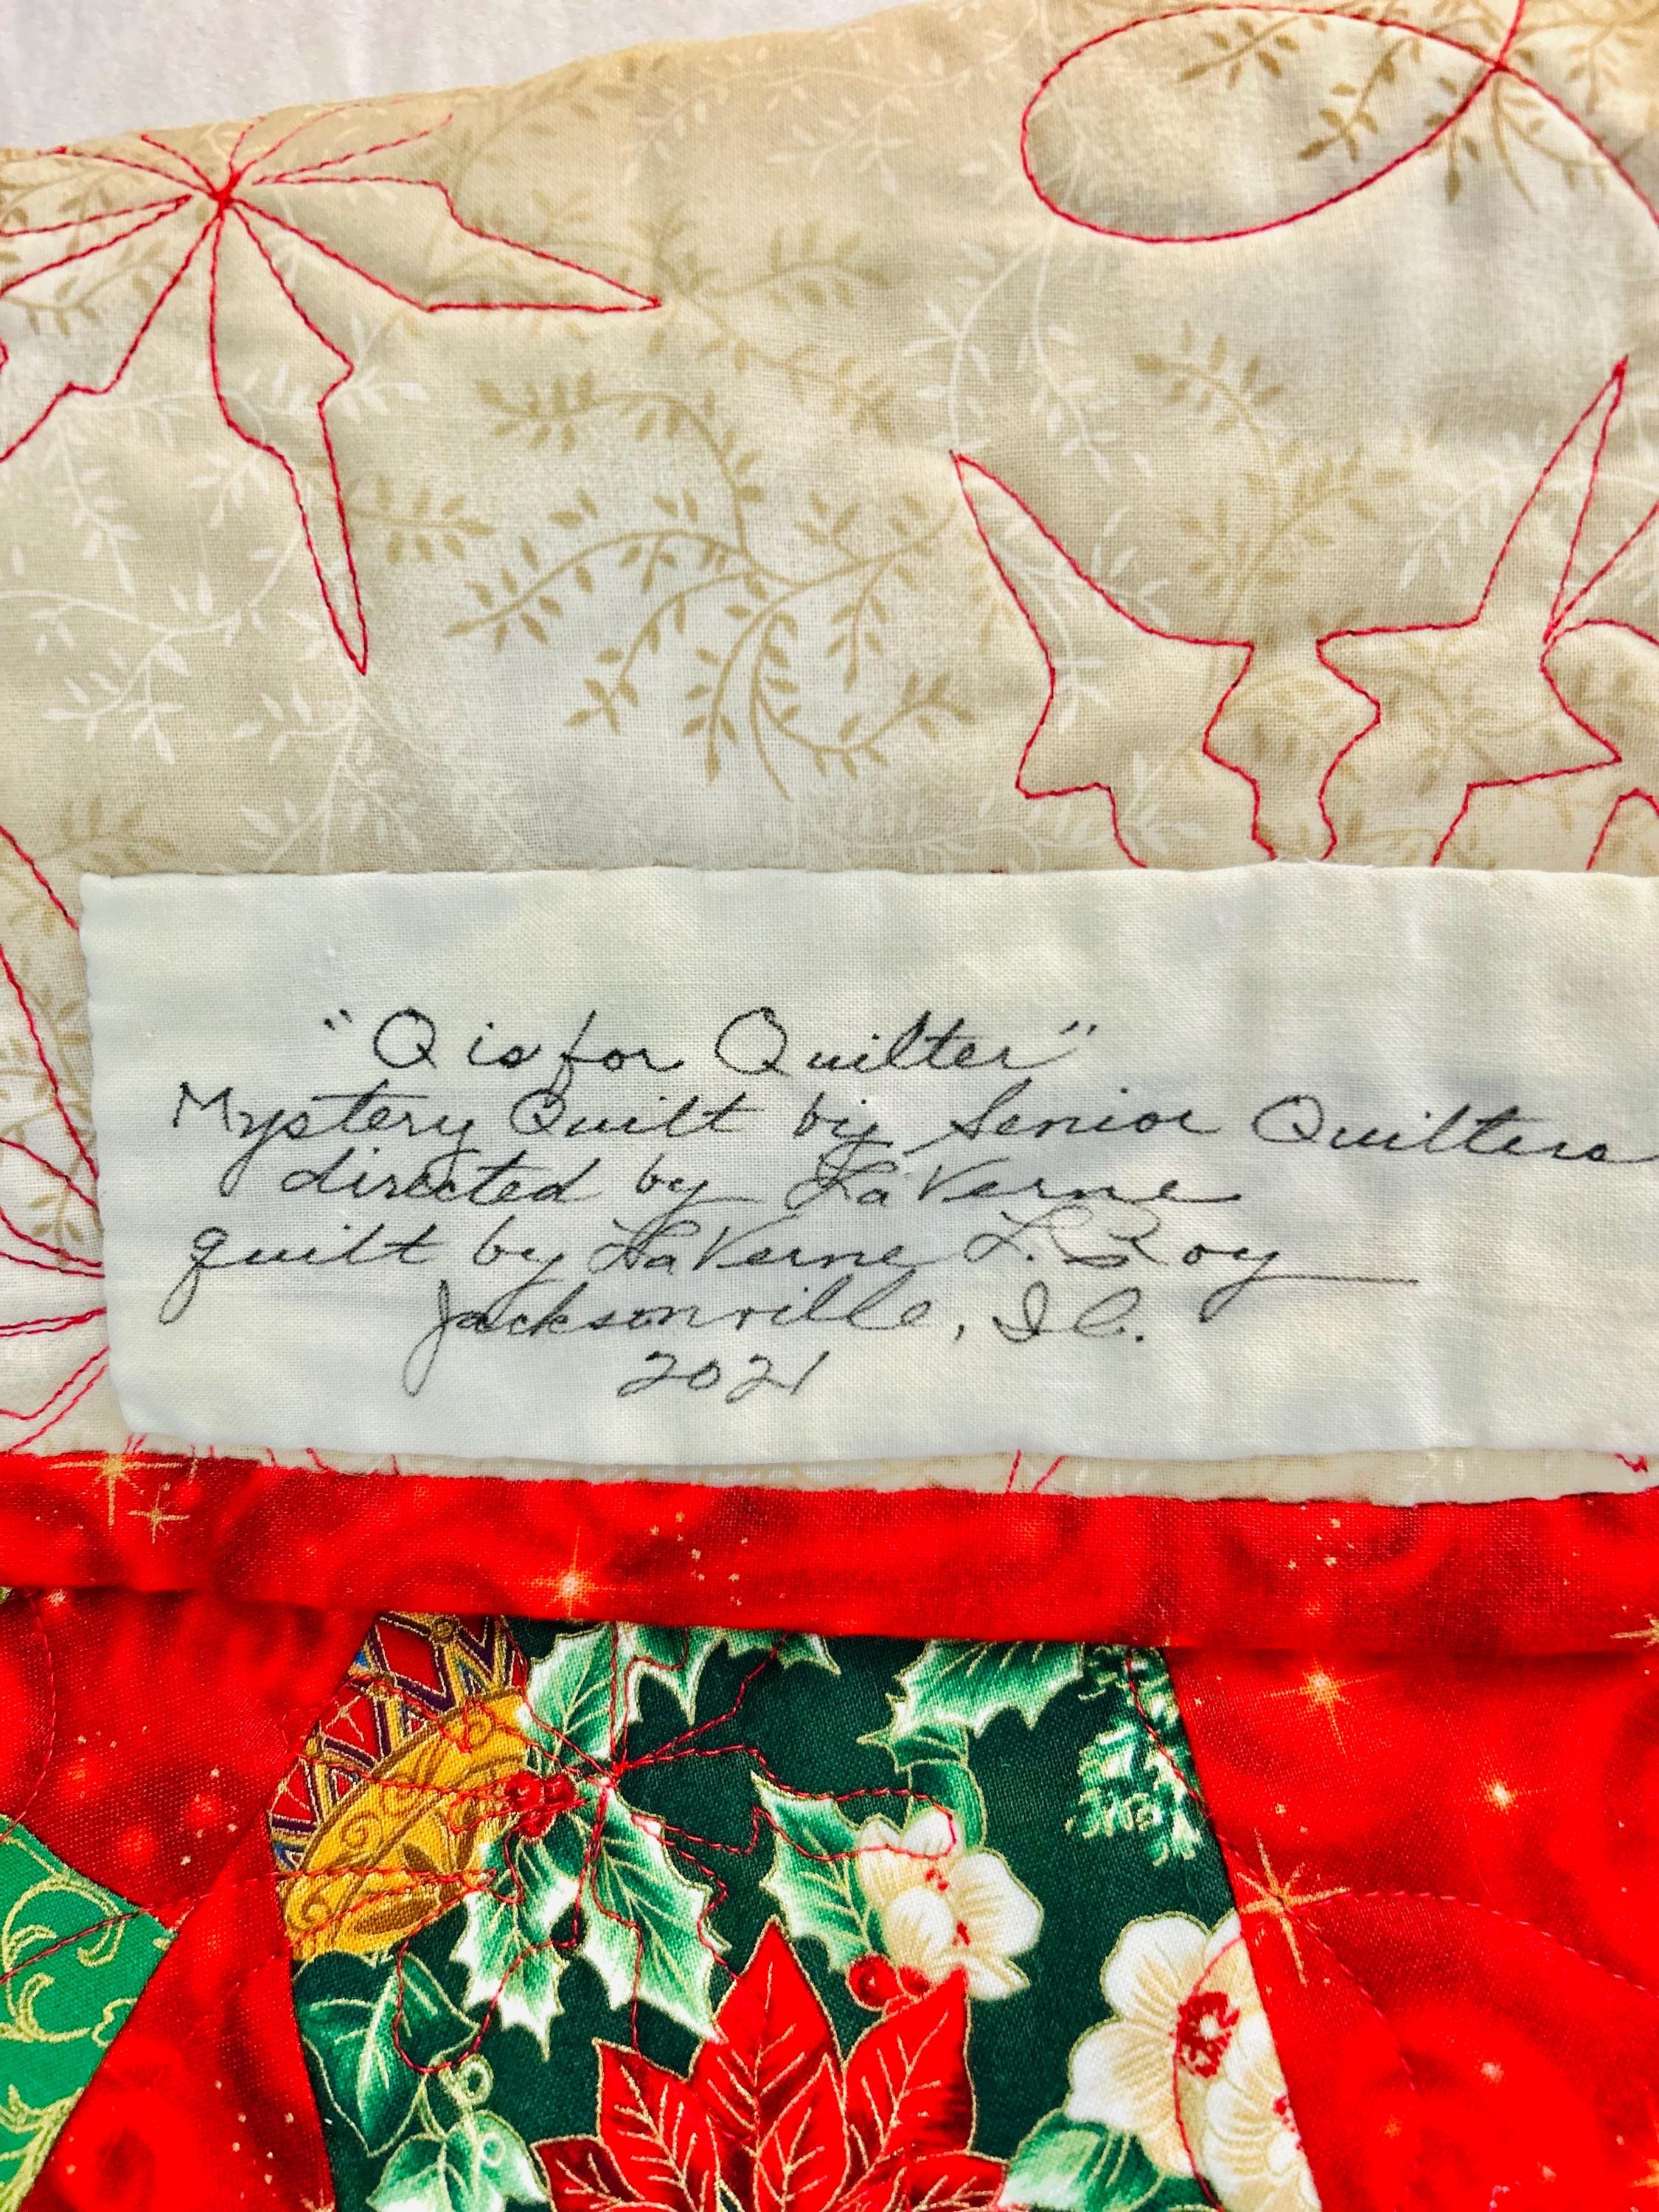 "Q is for Quilter"
Mystery Quilt by Senior Quilters
directed by LaVerne
quilt by LaVerne L. Roy
Jacksonville, Il.
2021